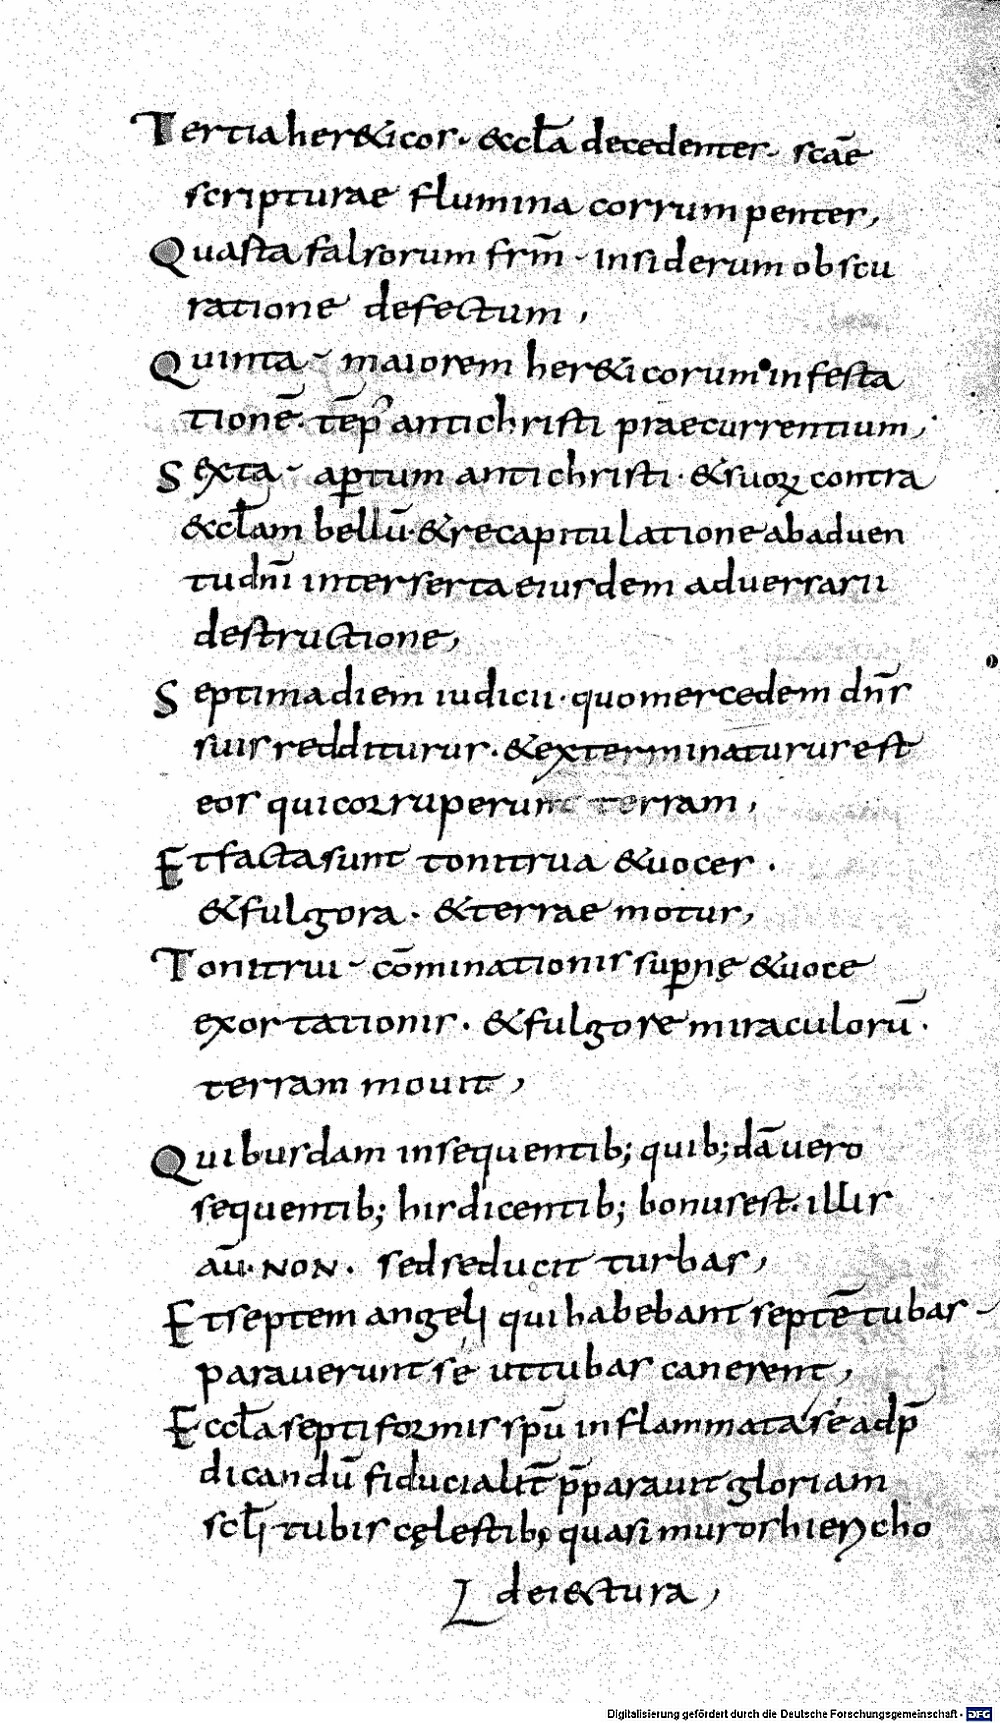 Tertia her&icos · & ecl̄a decedentes · scāe
scripturae flumina corrumpentes,
Quarta falsorum frm̄ · insiderum obscu
ratione defectum,
Quinta · maiorem her&icorum infesta
tionē · tēp̄ antichristi praecurrentium,
Sexta · aꝑtum antichristi · & suoꝝ contra
&cl̄am bellū · & recapitulatione ab aduen
tu dn̄i interserta eiusdem aduersarii
destructione,
Septima diem iudicii · quo mercedem dn̄s
suis redditurus · & exterminaturus est
eos qui corruperunt terram,
Et facta sunt tonitrua & uoces ·
& fulgora · & terrae motus,
Tonitrui · cōminationis suꝑnę & uoce
exortationis · & fulgore miraculorū ·
terram mouit,
Quibusdam insequentib; quib;dā uero
sequentib; his dicentib; bonus est · illis
aū · NON · sed seducit turbas,
Et septem angeli qui habebant septē tubas
parauerunt sé ut tubas canerent,
Eccl̄a septiformis spū inflammata sé ad p̄
dicandū fiducialit̄ p̄parauit gloriam
scl̄i tubis cęlestib; quasi muros hiericho
dei&tura,